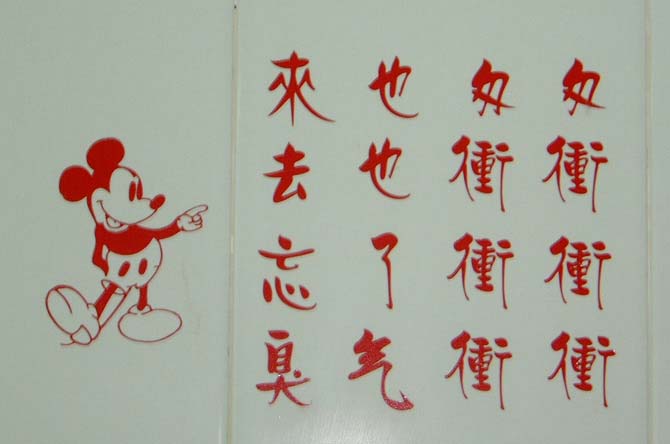 來也匆匆
去也衝衝
忘了衝衝
臭气衝衝